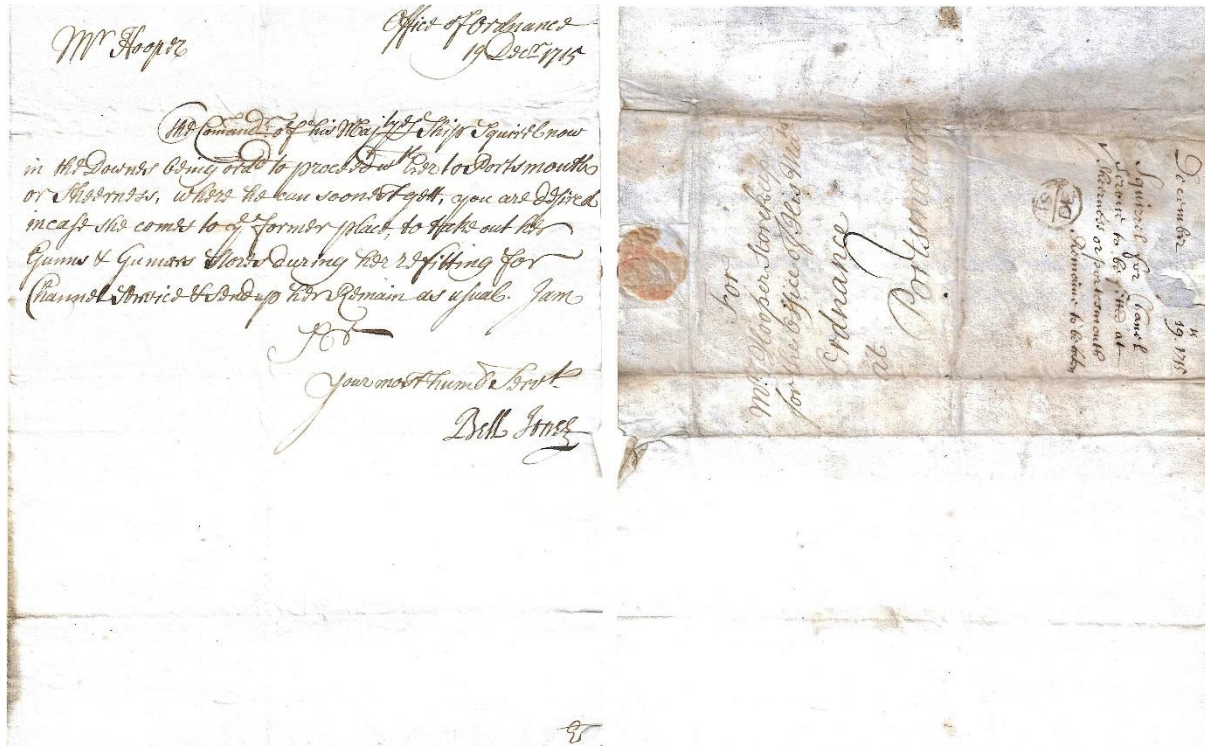 Mr Hooper
Office of Ordnance
19 Decr. 1715
The Comandr. of his Majtyes Ship Squirel now
in the Downes being ordd. to proceed wth her to Portsmouth
or Sheerness, where he can soonest gett, you are desired
incase she comes to ye former place, to take out her
Gunns & Gunners Stores during her refitting for
Channel Service & send up her Remain as usual. I am
Your most humble Servt.
Bell Jones
For
Mr. Hooper Storekeeper
for the Office of His Majts
Ordnance
at
Portsmouth
December 19. 1715
Squirell for Chanel
Service to be fitted at
Sheerness or Portsmouth
Remaine to be